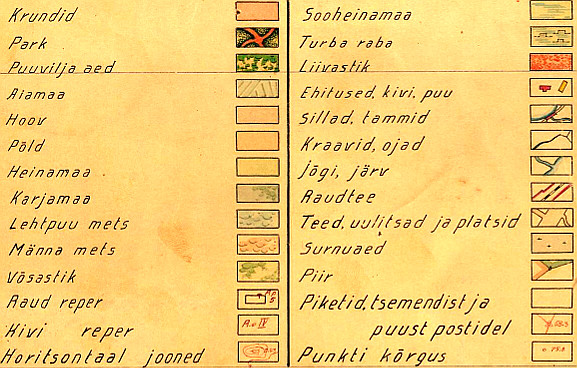 Krundid
Park
Puuvilja aed
Aiamaa
Hoov
Põld
Heinamaa
Karjamaa
Lehtpuu mets
Männa mets
Võsastik
Raud reper
Kivi reper
Horitsontaal jooned
Sooheinamaa
Turba raba
Liivastik
Ehitused, kivi, puu
Sillad, tammid
Kraavid, ojad
Jõgi, järv
Raudtee
Teed, uulitsad ja platsid
Surnuaed
Piir
Piketid, tsemendist ja
puust postidel
Punkti kõrgus